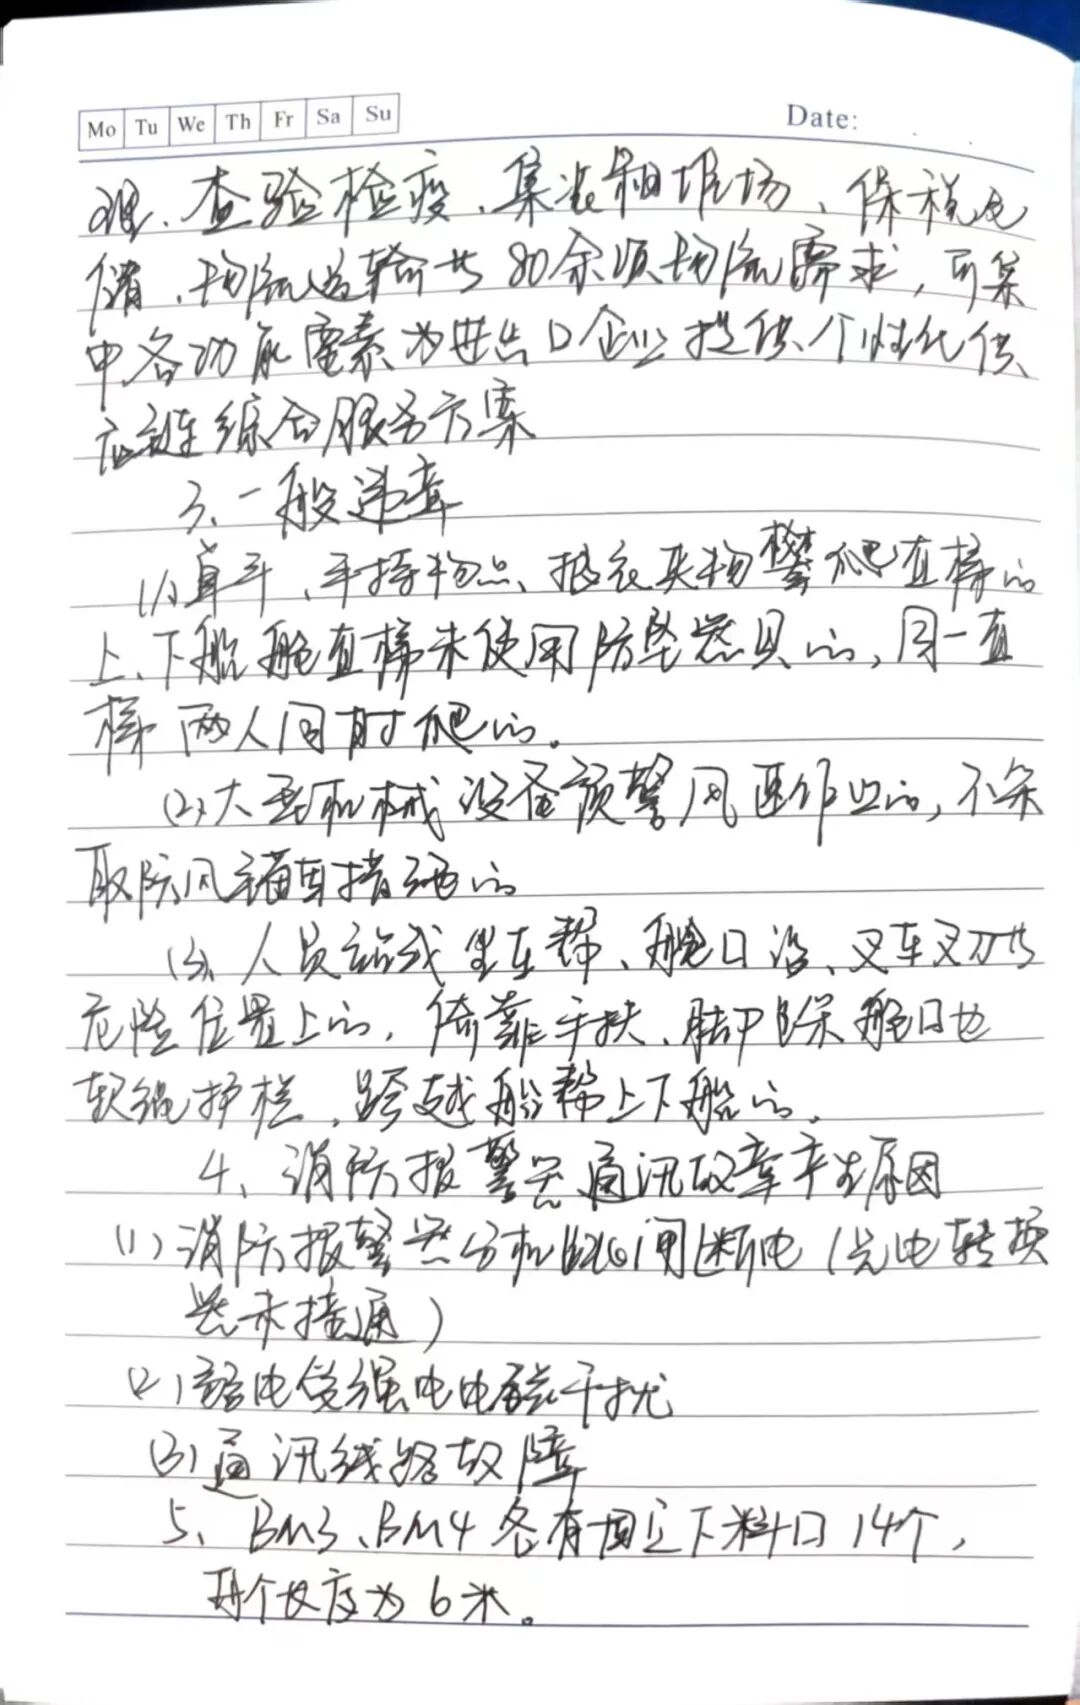 Mo Tu We Th Fr Sa Su
Date:
理、查验检疫、集装箱堆场、保税仓
储、物流运输共80余项物流需求，可集
中各功能要素为进出口企业提供个性化供
应链综合服务方案
3、一般违章
(1)、单手、手持物品、披衣夹物攀爬直梯的
上、下船舱直梯未使用防坠器具的，同一直
梯两人同时爬的。
(2)、大型机械设备预警风速作业的，不采
取防风锚车措施的
(3)、人员站或坐在帮、舱口沿、叉车叉刀等
危险位置上的，倚靠手扶、脚踩舱口边
软绳护栏，跨越船帮上下船的。
4、消防报警器通讯故障产生原因
(1)消防报警器分机跳闸断电(光电转换
器未接通)
(2)弱电受强电电磁干扰
(3)通讯线路故障
5、BM3、BM4各有固定下料口14个，
每个长度为6米。